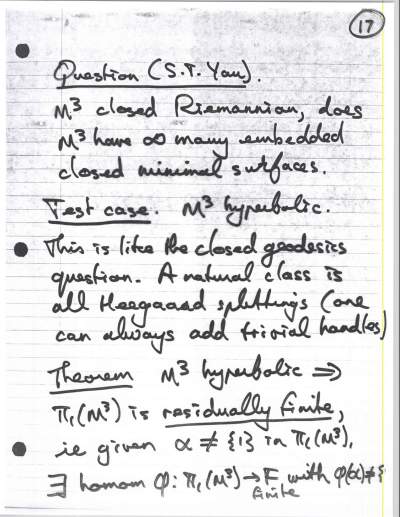 17
Question (S.T. Yau).
M³ closed Riemannian, does
M³ have ∞ many embedded
closed minimal surfaces.
Test case. M³ hyperbolic.
This is like the closed geodesics
question. A natural class is
all Heegaard splittings (one
can always add trivial handles)
Theorem M³ hyperbolic ⇒
π₁(M³) is residually finite,
ie given α ≠ {1} in π₁(M³),
∃ homom φ: π₁(M³) → F with φ(α) ≠ {
finite